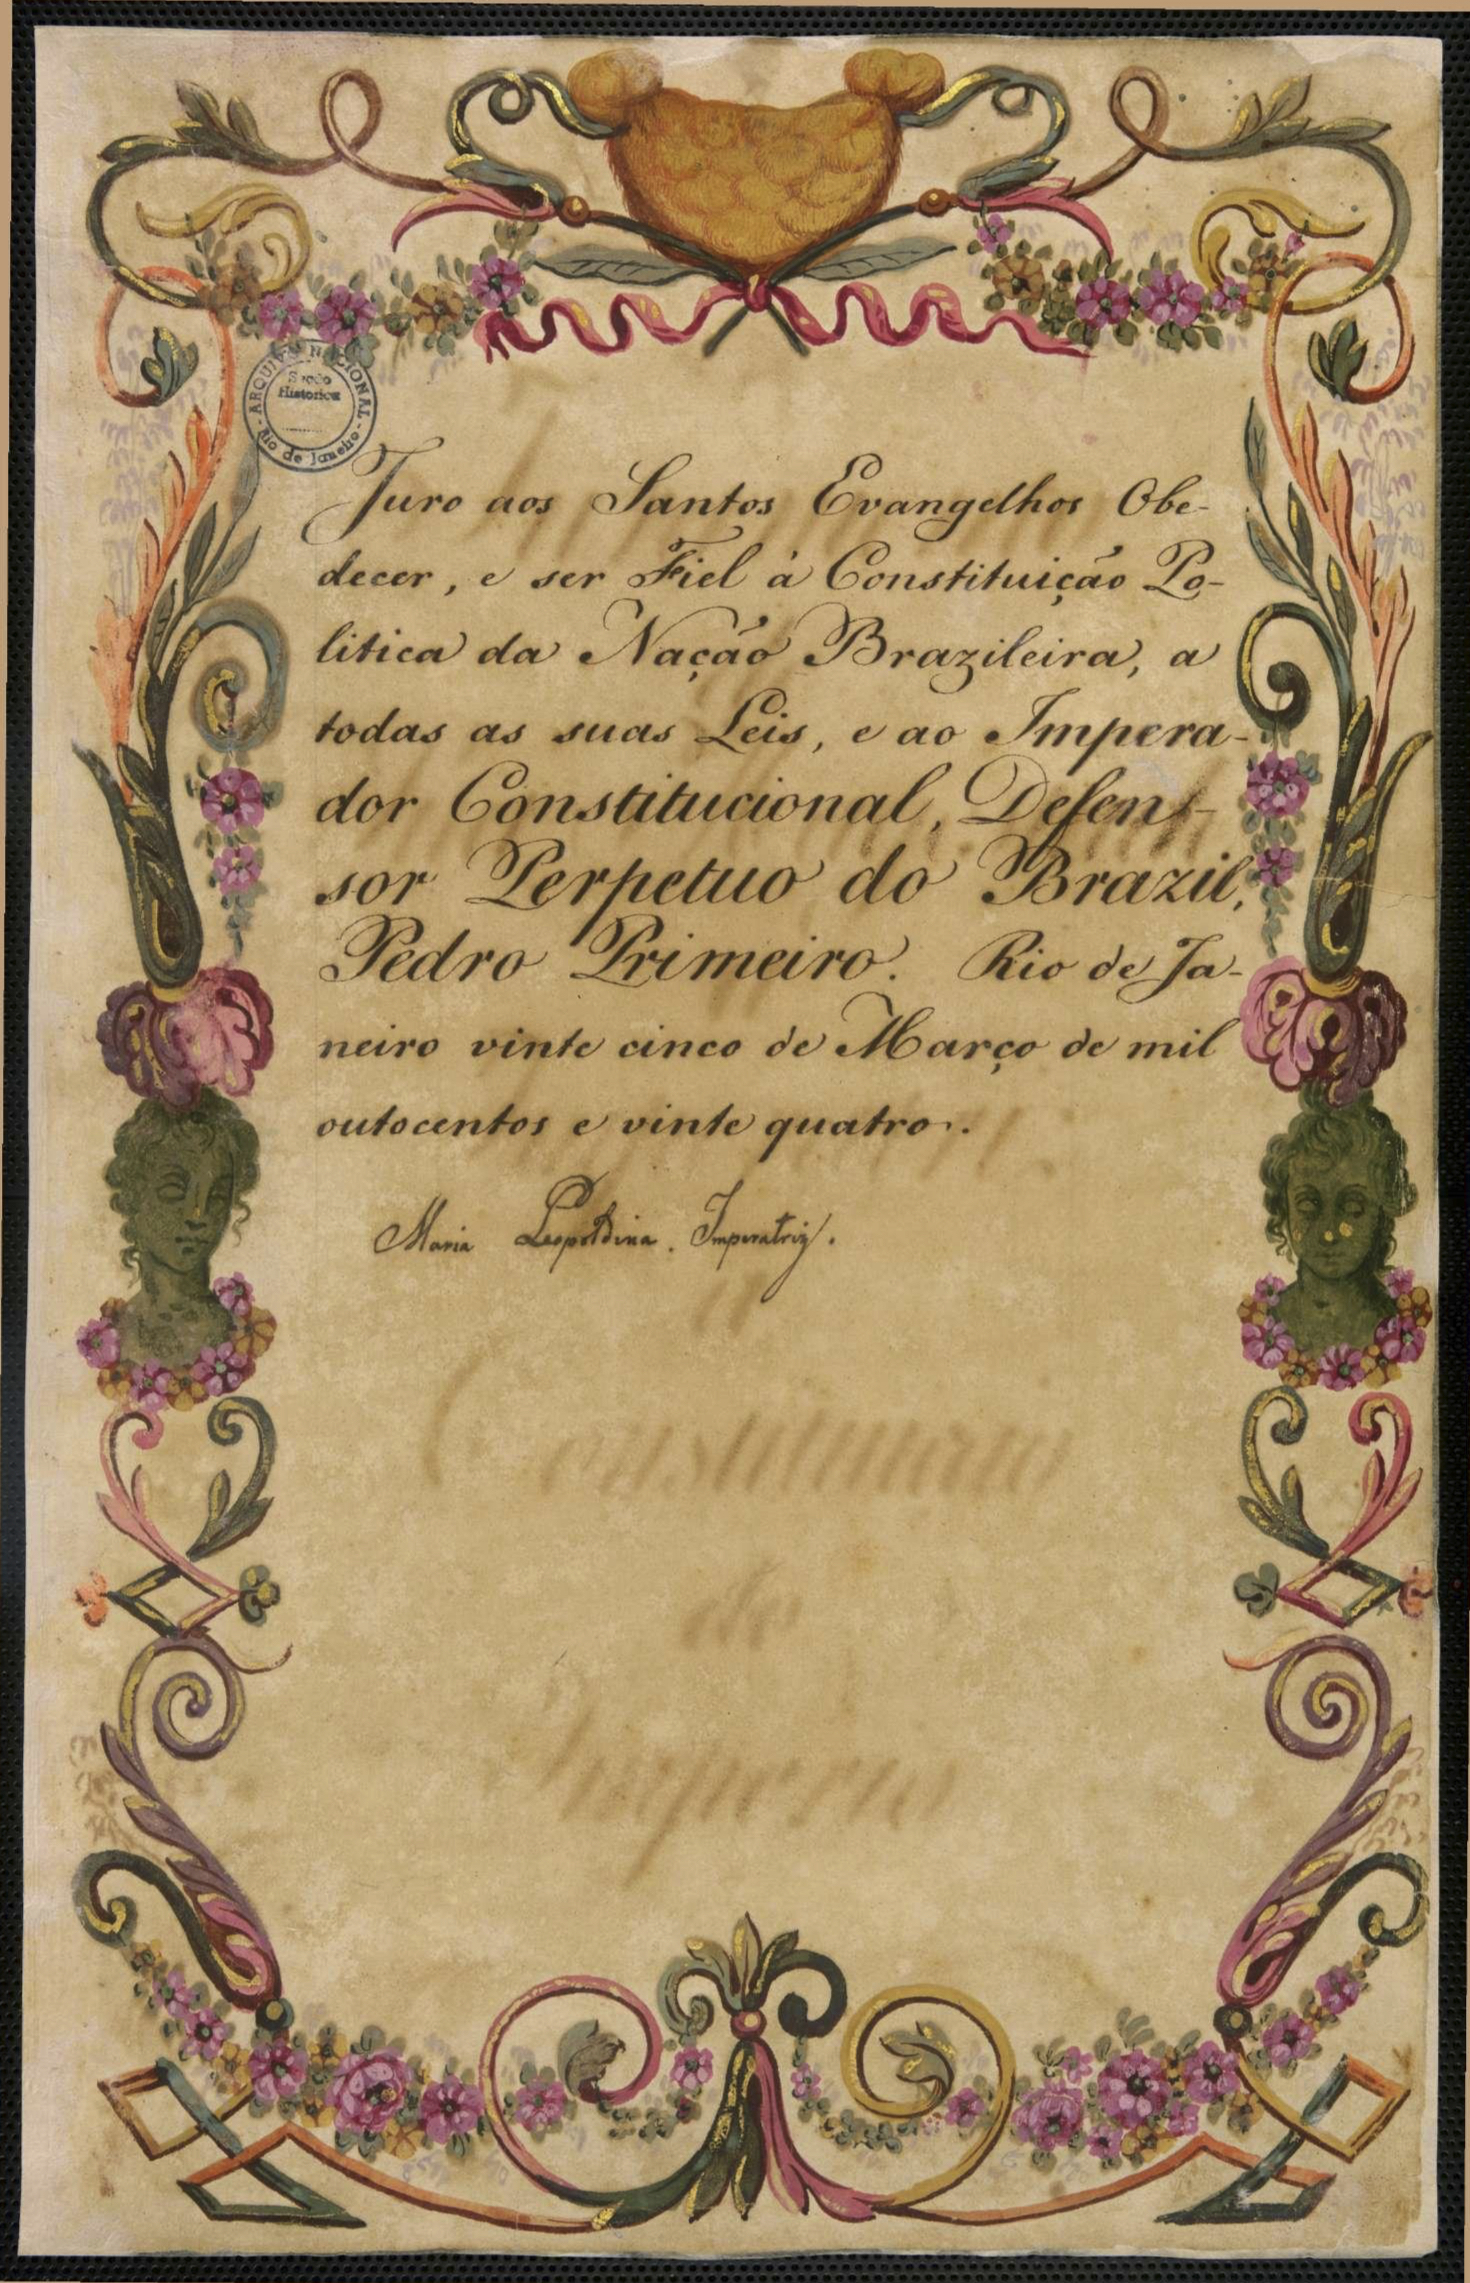 ARQUIVO NACIONAL
Secção
Historica
- Rio de Janeiro -
Juro aos Santos Evangelhos Obe-
decer, e ser Fiel á Constituição Po-
litica da Nação Brazileira, a
todas as suas Leis, e ao Impera-
dor Constitucional, Defen-
sor Perpetuo do Brazil,
Pedro Primeiro. Rio de Ja-
neiro vinte cinco de Março de mil
outocentos e vinte quatro.
Maria Leopoldina. Imperatriz.
Constituição
do
Imperio